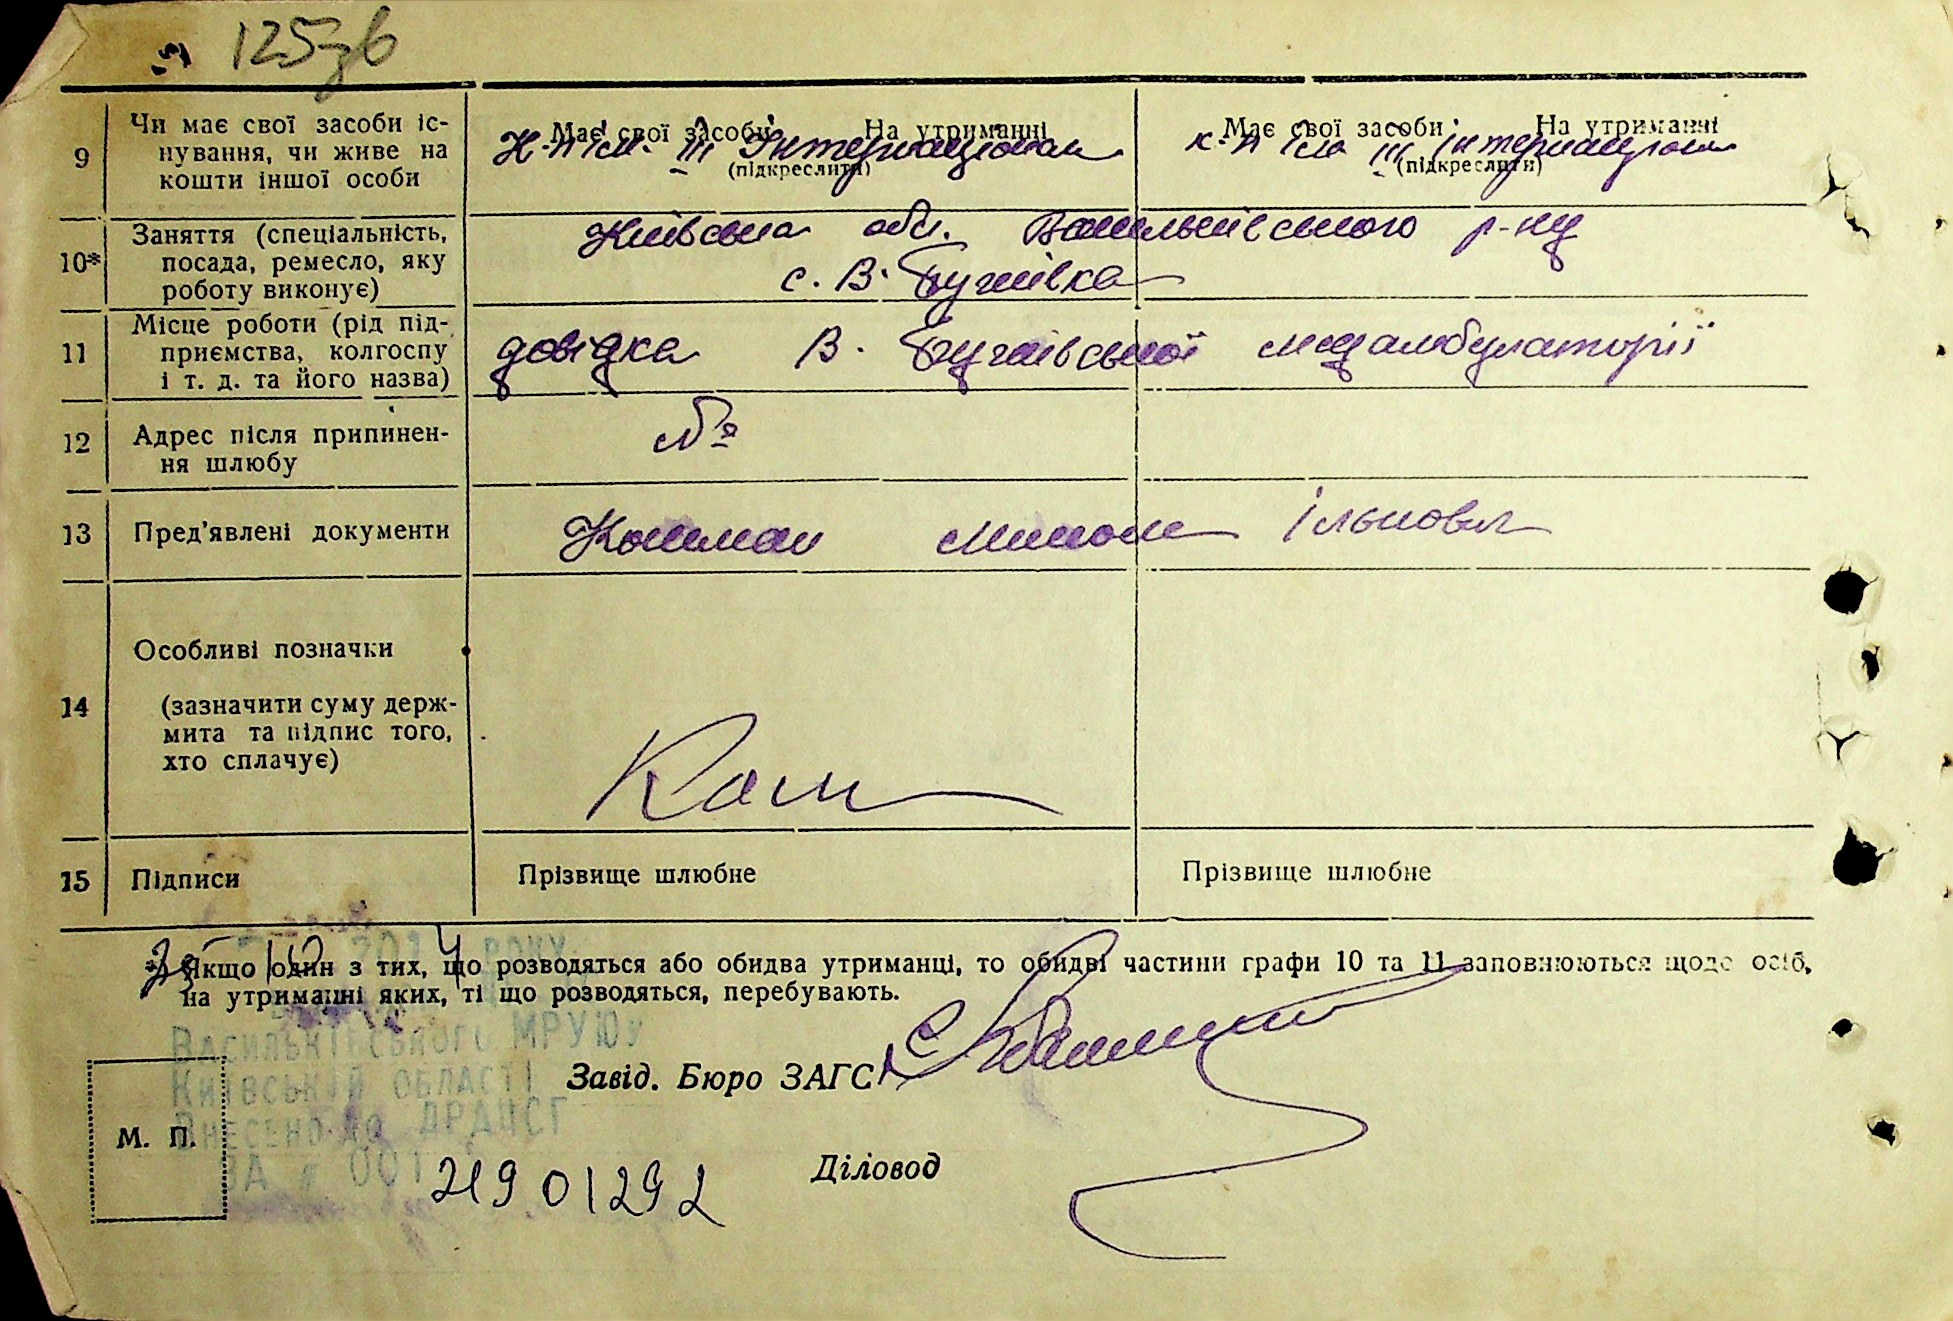 125зв
9 Чи має свої засоби іс-
нування, чи живе на
кошти іншої особи
Має свої засоби На утриманні
(підкреслити)
К-п ім. III Інтернаціонал
Має свої засоби На утриманні
(підкреслити)
к-п ім III Інтернаціонал
10* Заняття (спеціальність,
посада, ремесло, яку
роботу виконує)
Київська обл. Васильківського р-ну
с. В. Бугаївка
11 Місце роботи (рід під-
приємства, колгоспу
і т. д. та його назва)
довідка В. Бугаївської медамбулаторії
12 Адрес після припинен-
ня шлюбу
№
13 Пред'явлені документи
Ількович
14 Особливі позначки
(зазначити суму держ-
мита та підпис того,
хто сплачує)
15 Підписи
Прізвище шлюбне
Прізвище шлюбне
*) Якщо один з тих, що розводяться або обидва утриманці, то обидві частини графи 10 та 11 заповнюються щодо осіб,
на утриманні яких, ті що розводяться, перебувають.
РОКУ
Васильківського МРУЮ
Київській області
Внесено до ДРАЦСГ
001
21901292
Завід. Бюро ЗАГС
М. П.
Діловод